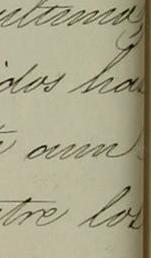 ultimo,
idos has
aun
tre los